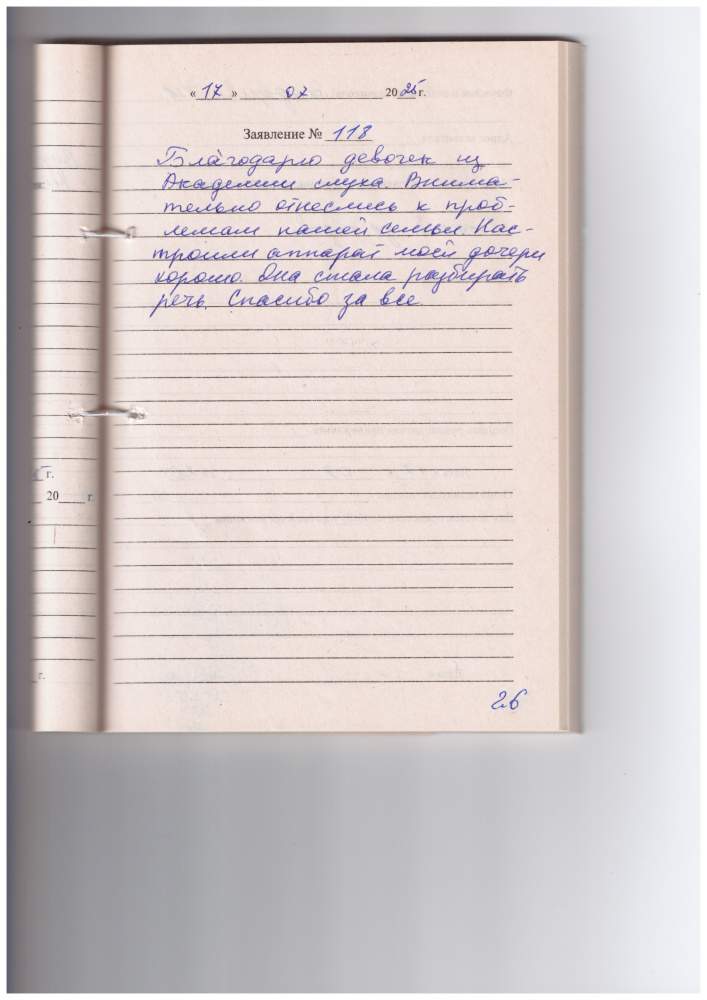 «17» 07 2025 г.
Заявление № 118
Благодарю девочек из
Академии слуха. Внима-
тельно отнеслись к проб-
лемам нашей семьи. Нас-
троили аппарат моей дочери
хорошо. Она стала разбирать
речь. Спасибо за все
г.
20 г.
г.
26